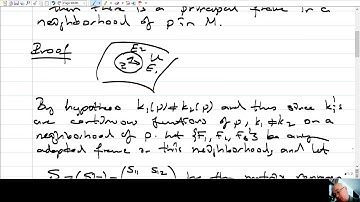 then there is a principal frame in a
neighborhood of p in M.
Proof
E2
U
E1
By hypothesis k1(p) ≠ k2(p) and thus since ki's
are continuous functions of p, k1 ≠ k2 on a
neighborhood of p. Let {F1, F2, F3} be any
adapted frame on this neighborhood, and let
S = (Sij) = (S11 S12) be the matrix